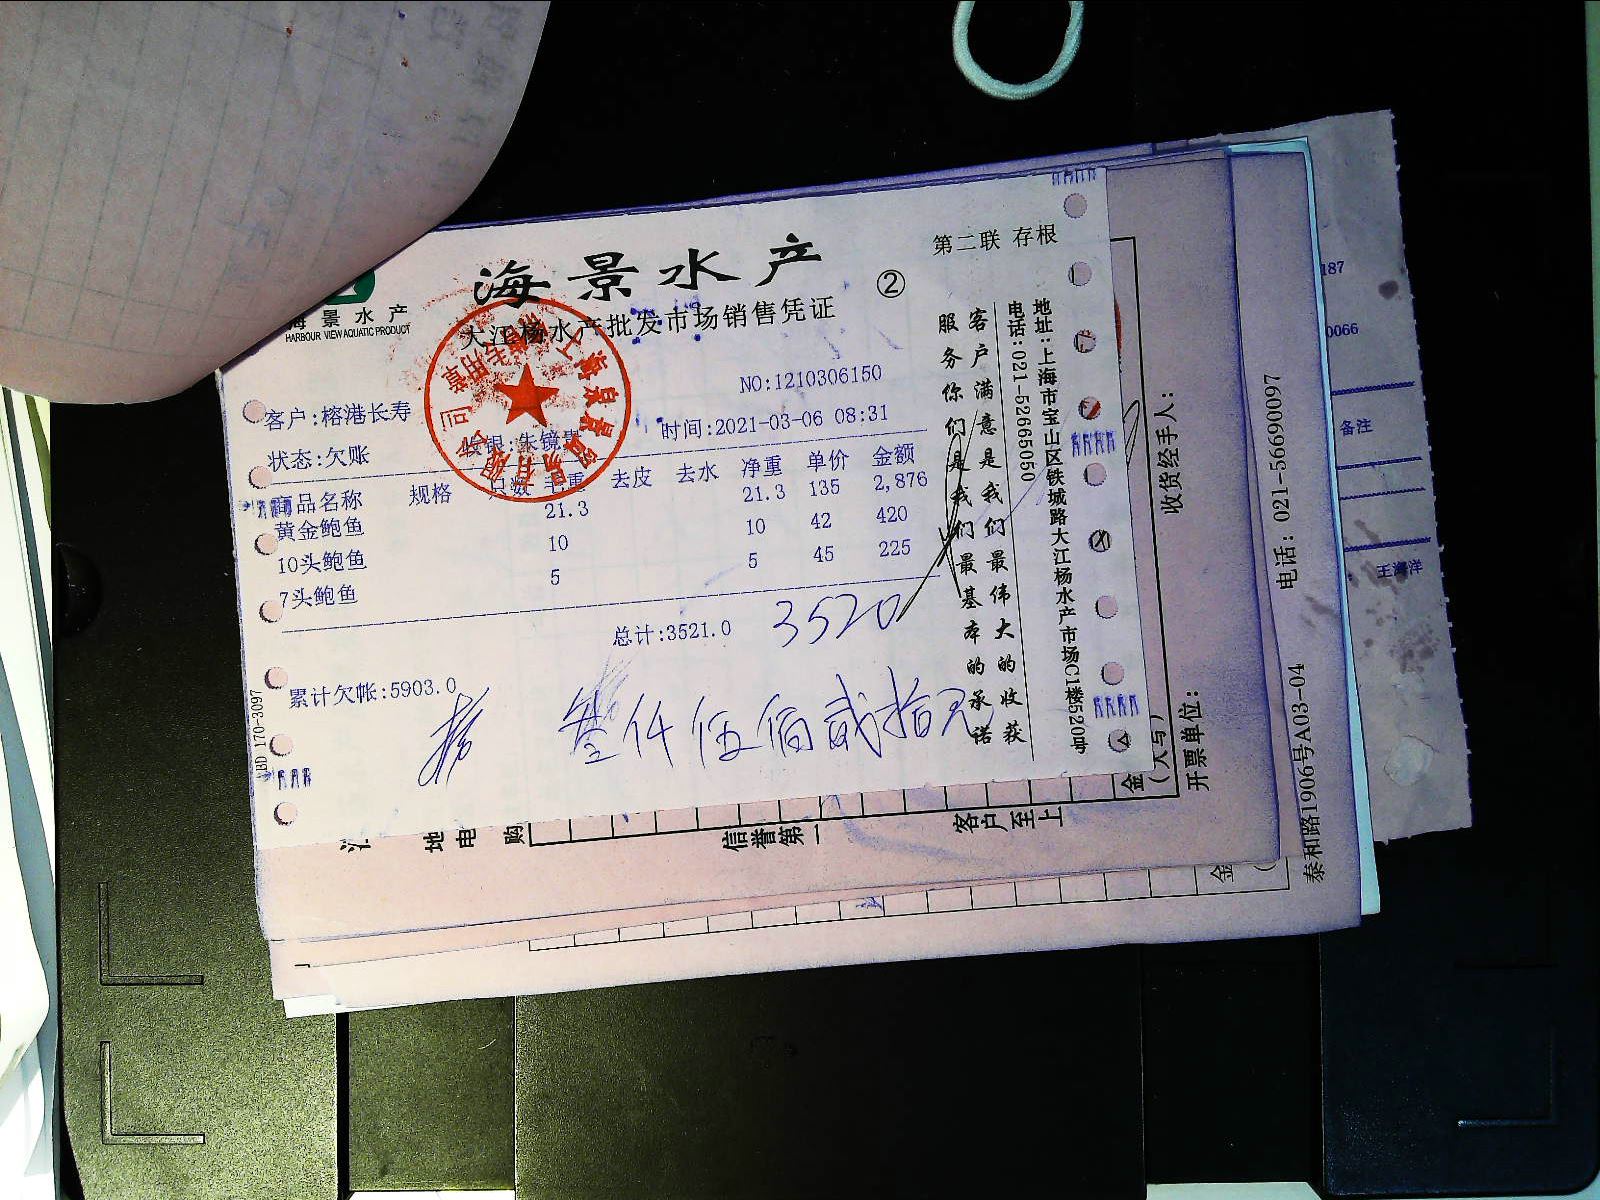 海景水产
第二联 存根
②
大江杨水产批发市场销售凭证
海景水产
HARBOUR VIEW AQUATIC PRODUCT
NO:1210306150
客户:榕港长寿
时间:2021-03-06 08:31
状态:欠账
商品名称 规格 只数 毛重 去皮 去水 净重 单价 金额
黄金鲍鱼 21.3 21.3 135 2,876
10头鲍鱼 10 10 42 420
7头鲍鱼 5 5 45 225
总计:3521.0 3520
累计欠帐:5903.0
叁仟伍佰贰拾元
客户满意是我们最伟大的收获
服务你们是我们最基本的承诺
地址:上海市宝山区铁城路大江杨水产市场C1楼520号
电话:021-52665050
170-3097
收货经手人:
开票单位:
信誉第一
客户至上
地
电
购
金
金
电话: 021-56690097
泰和路1906号A03-04
187
0066
备注
王海洋